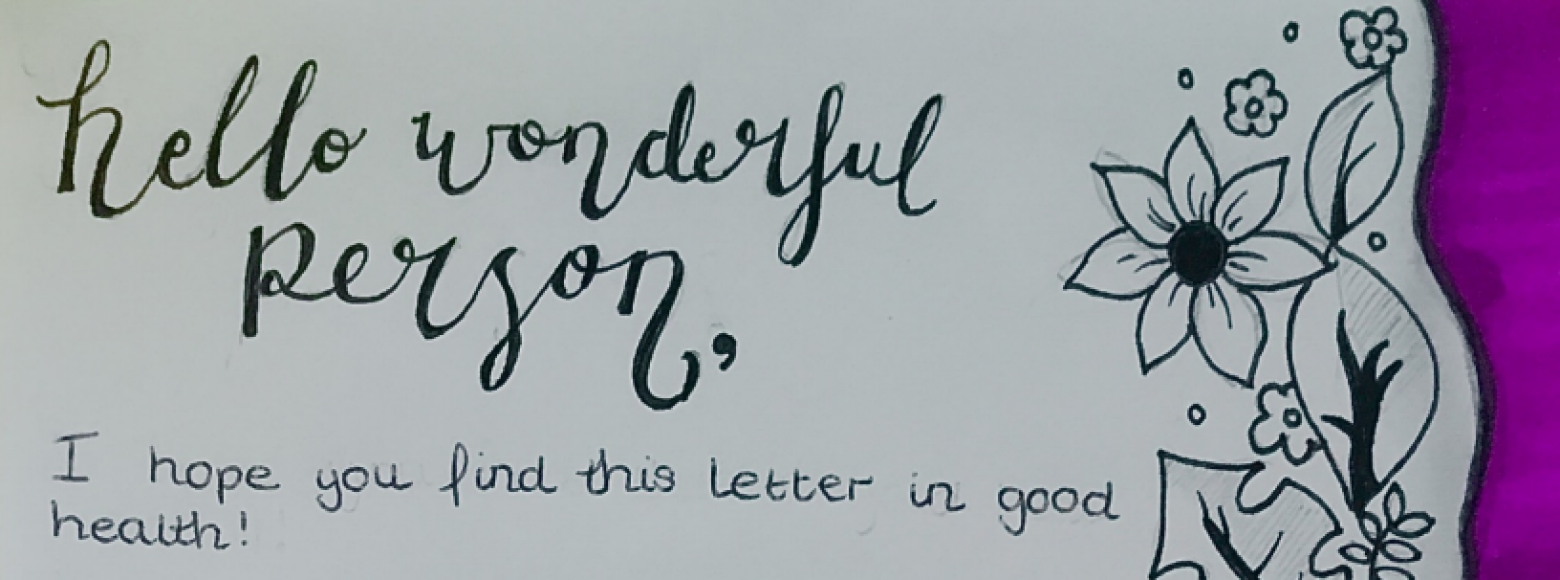 hello wonderful
person,
I hope you find this letter in good
health!